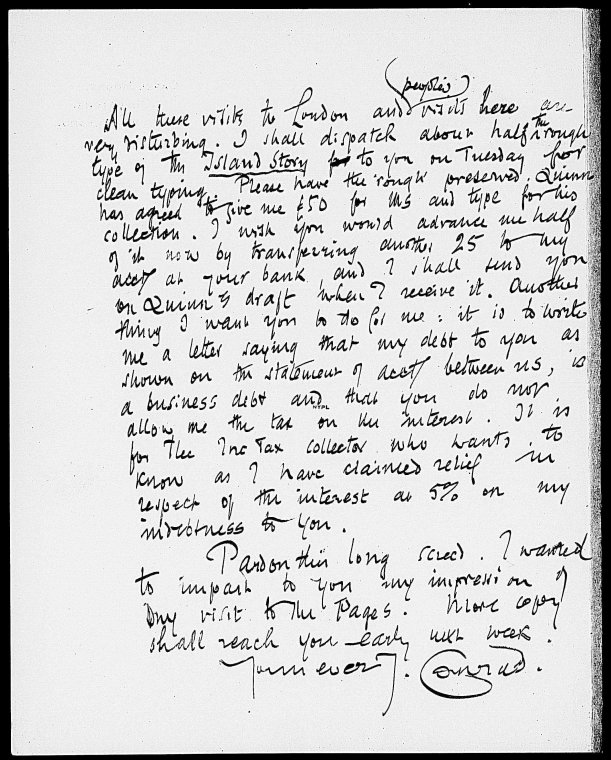 people's
All these visits to London and visits here are
very disturbing. I shall dispatch about half the rough
type of the Island Story to you on Tuesday for
clean typing. Please have the rough preserved. Quinn
has agreed to give me £50 for MS and type for his
collection. I wish you would advance me half
of it now by transferring another 25 to my
acct/ at your bank, and I shall send you
on Quinn's draft when I receive it. Another
thing I want you to do for me: it is to write
me a letter saying that my debt to you as
shown on the statement of acct/ between us, is
a business debt and that you do not
allow me the tax on the interest. It is
for the Inc Tax collector who wants to
know as I have claimed relief in
respect of the interest at 5% on my
indebtness to you.
Pardon this long screed. I wanted
to impart to you my impression of
my visit to the Pages. More copy
shall reach you early next week.
Yours ever J. Conrad.